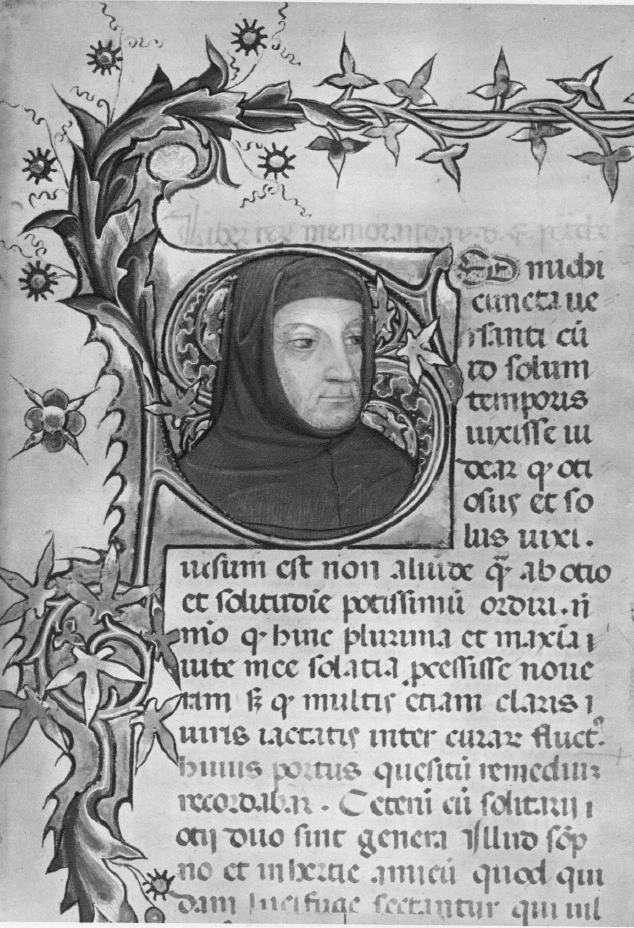 michi
cuncta ue
rsanti cū
id solum
temporis
uixisse ui
dear ꝙ oti
osus et so
lus uixi.
uisum est non aliūde q̄ ab otio
et solitudīe potissimū ordiri. āi
mo ꝙ hinc plurima et maxīa ī
uite mee solatia p̲cessisse noue
ram ꝙ multis etiam claris ī
uiris iactatis inter curar fluct᷒
huius portus quesitū remediū
recordabar. Ceterū cū solitarij ī
otij duo sint genera Illud sōp
no et inhertie amicū quod qui
dam lucifuge sectantur qui uil